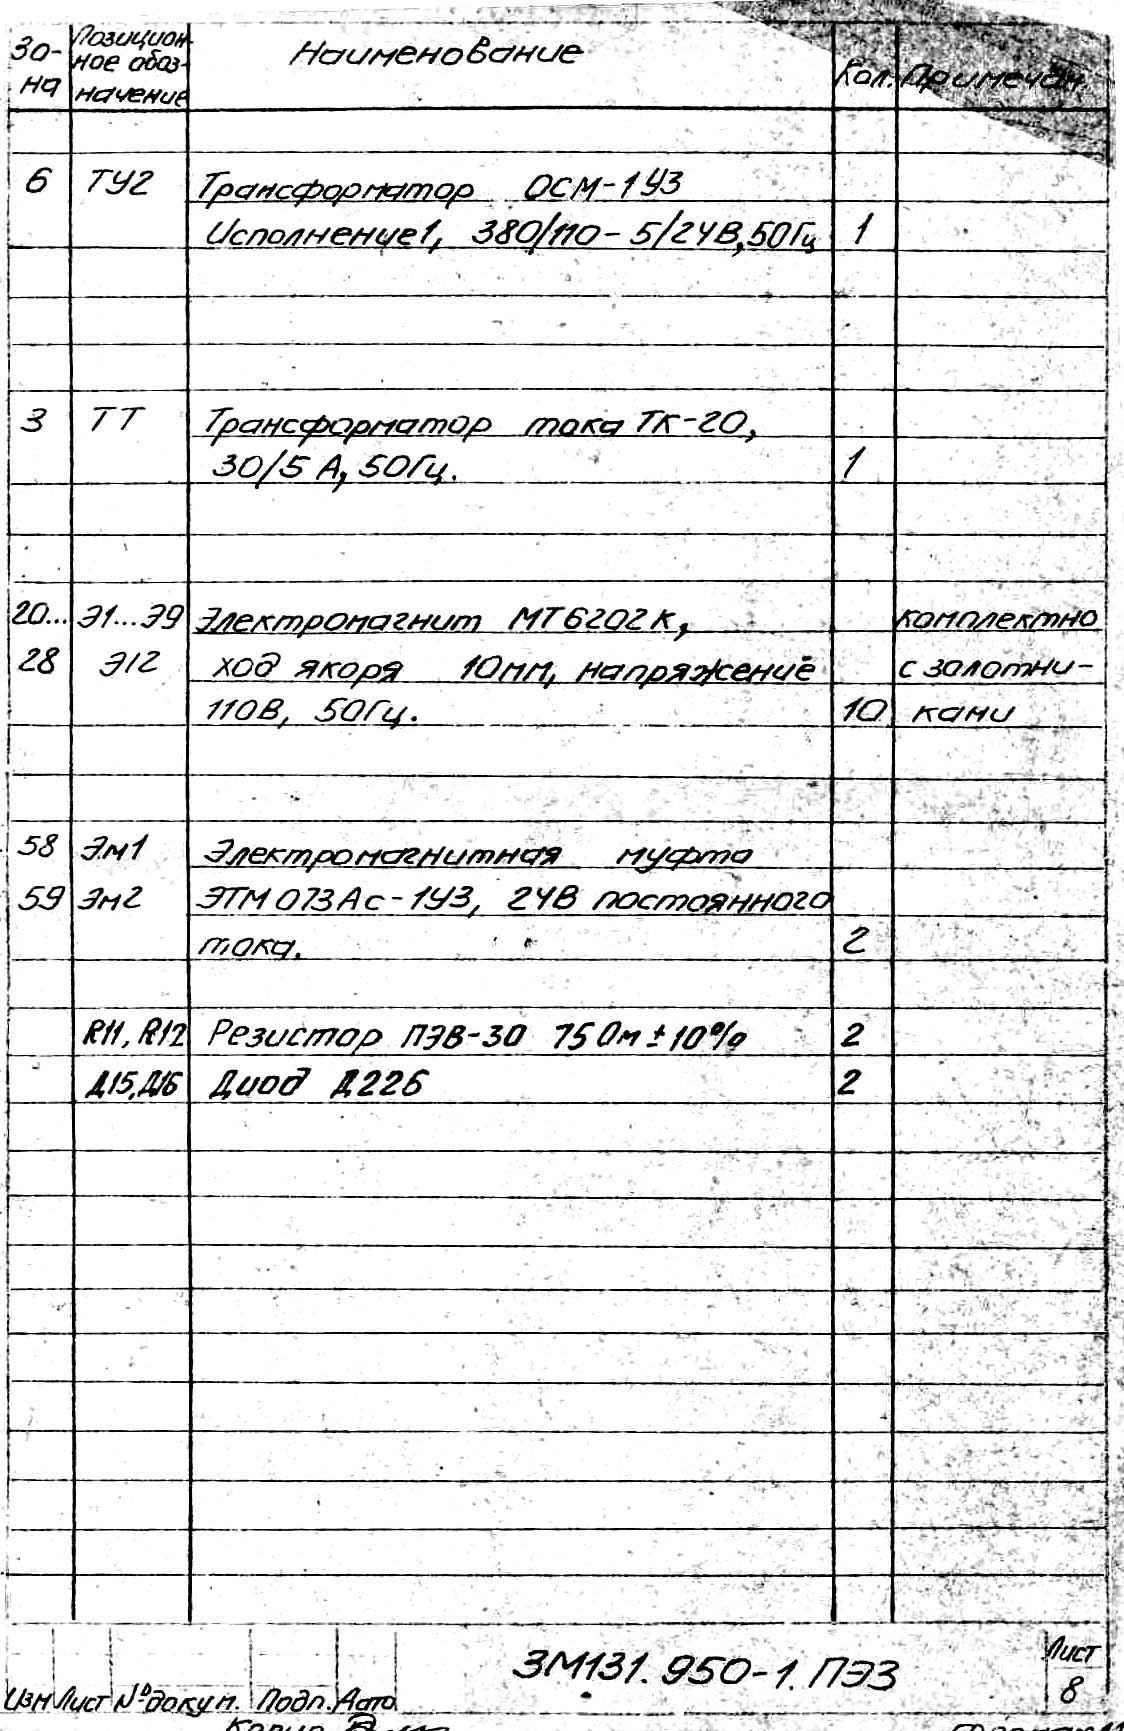 Зо-
на
Позицион-
ное обоз-
начение
Наименование
Кол.
Примечан.
6 ТУ2 Трансформатор ОСМ-1У3
Исполнение1, 380/110-5/24В,50Гц 1
3 ТТ Трансформатор тока ТК-20,
30/5 А, 50Гц. 1
20... Э1...Э9 Электромагнит МТ6202К, комплектно
28 Э12 ход якоря 10мм, напряжение с золотни-
110В, 50Гц. 10 ками
58 Эм1 Электромагнитная муфта
59 Эм2 ЭТМ073Ас-1У3, 24В постоянного
тока. 2
R11, R12 Резистор ПЭВ-30 75 Ом ± 10% 2
Д15,Д16 Диод Д226 2
3М131.950-1.ПЭ3
Лист
8
Изм Лист №докум. Подп. Дата